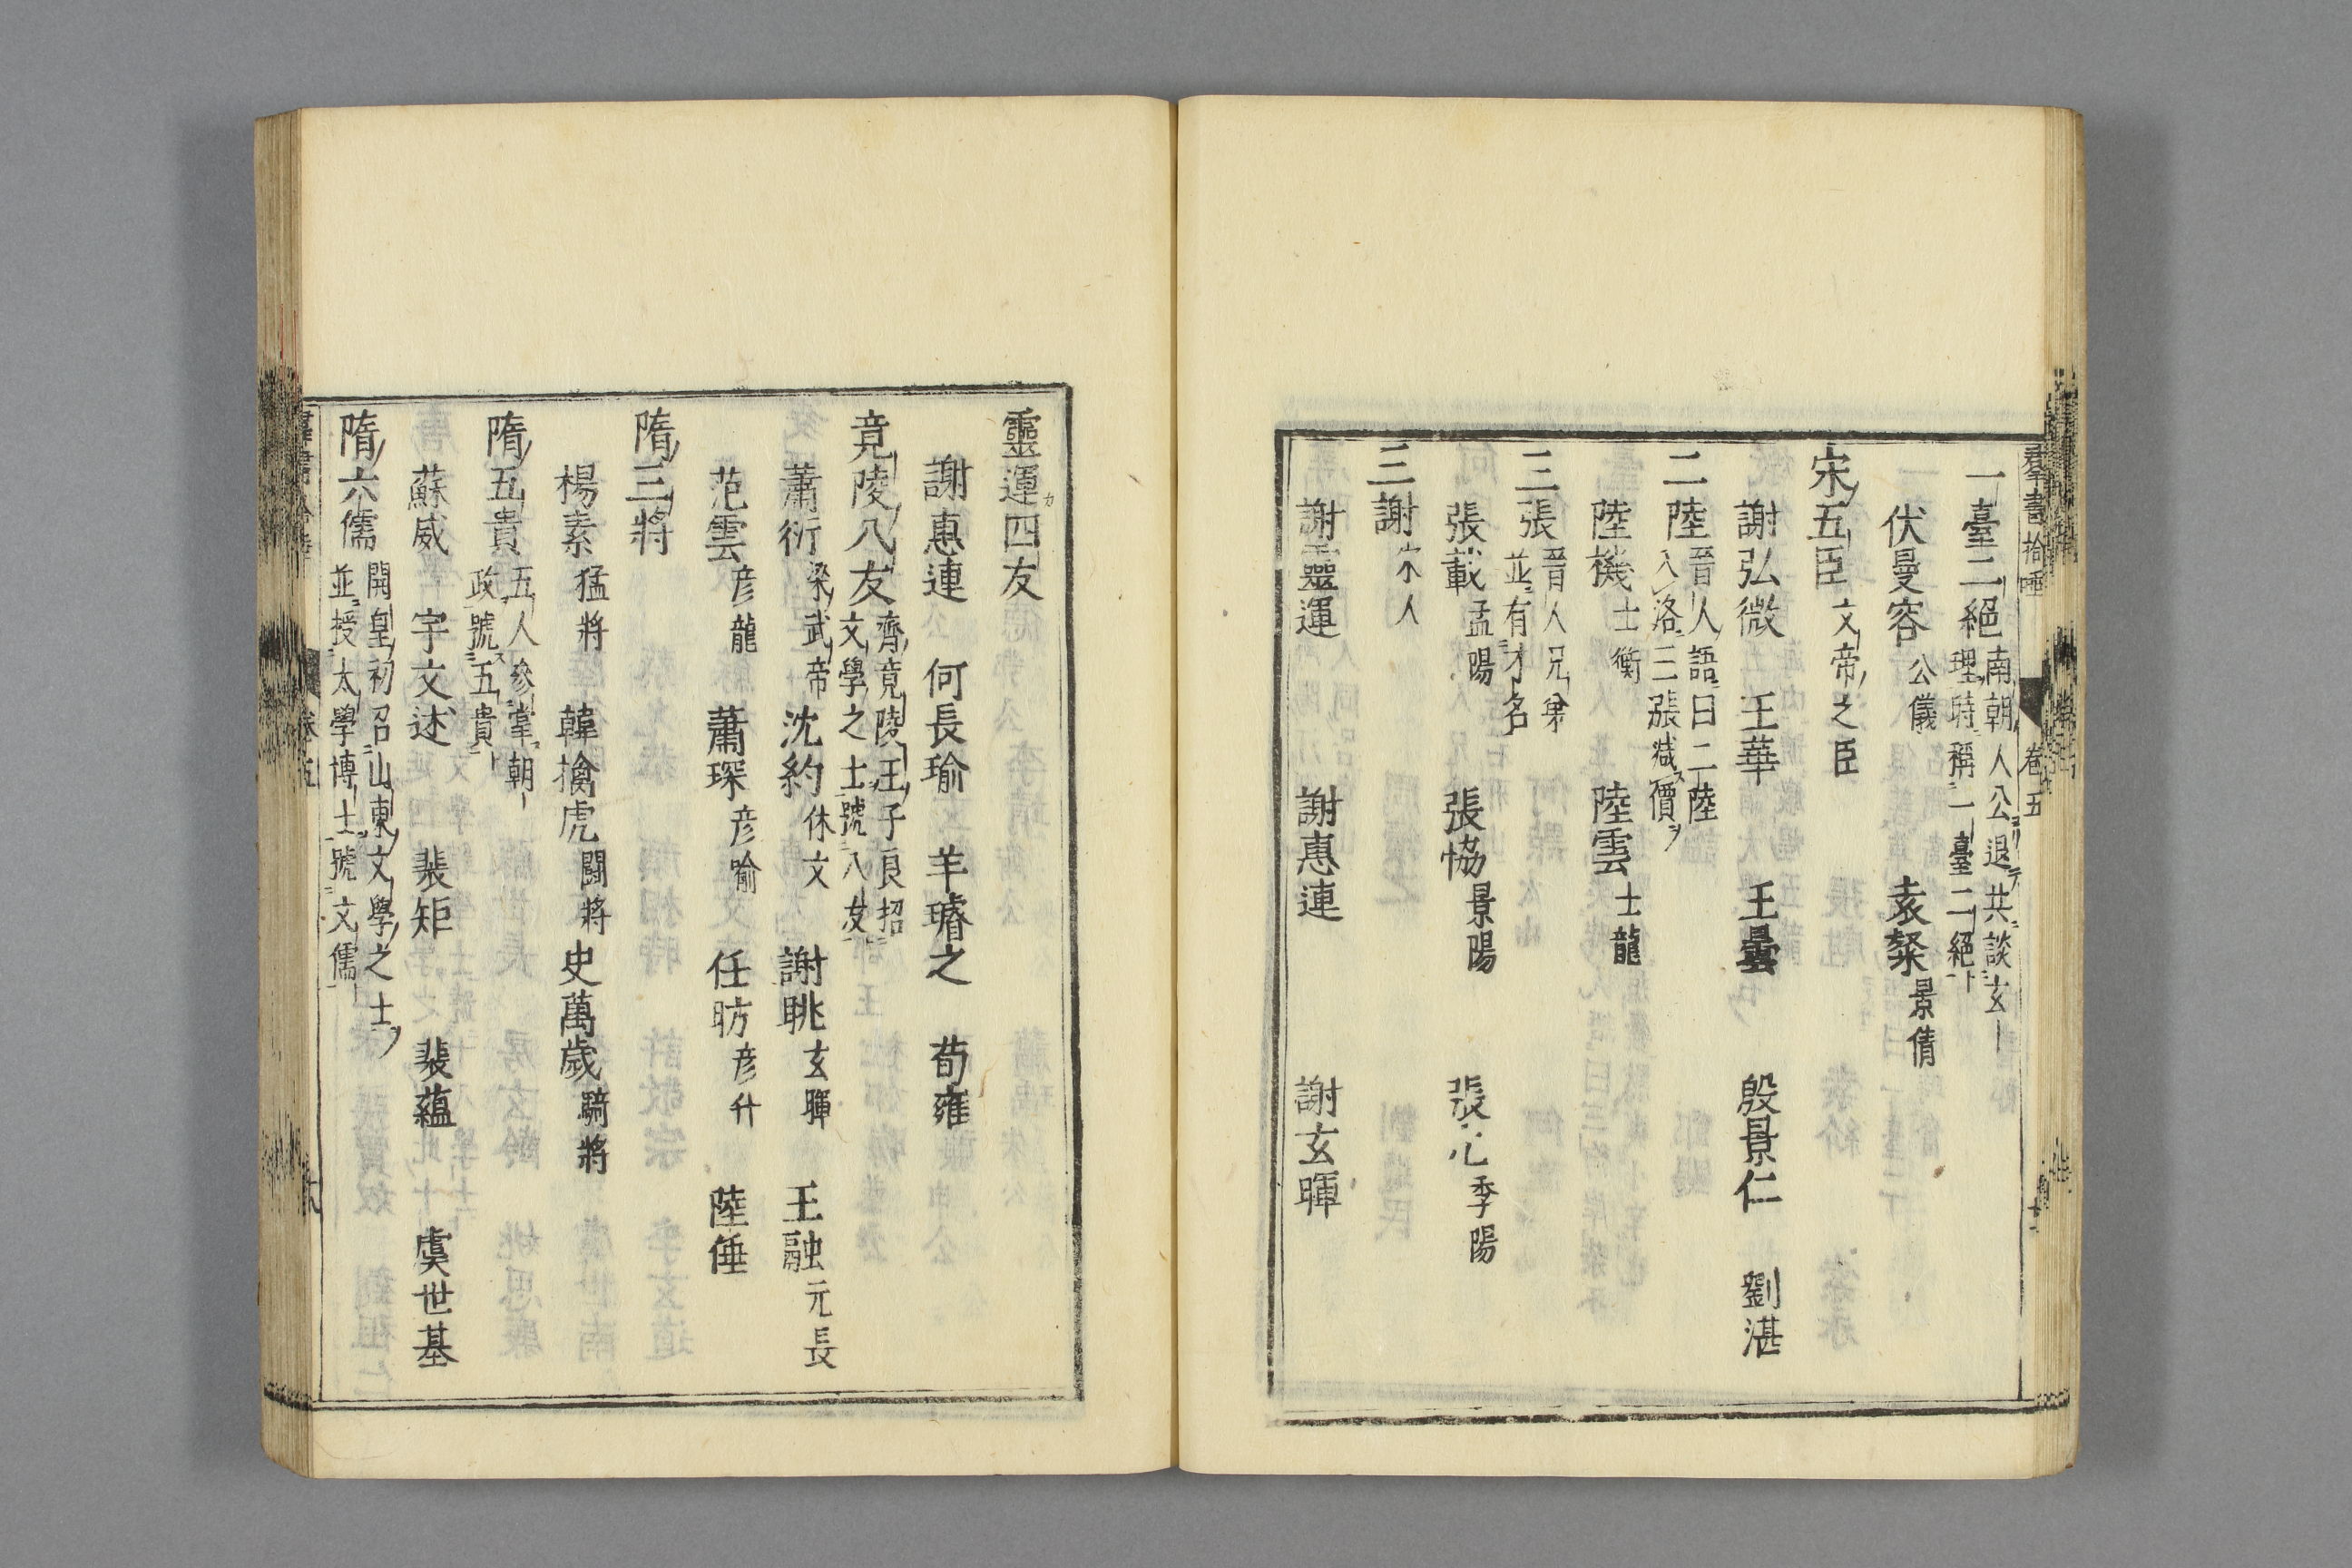 羣書拾唾 卷五
一臺二絕 南朝人公退共談玄理時稱一臺二絕
伏曼容 公儀 袁粲 景倩
宋五臣 文帝之臣
謝弘微 王華 王曇 殷景仁 劉湛
二陸 晉人語曰二陸入洛三張減價
陸機 士衡 陸雲 士龍
三張 晉人兄弟並有才名
張載 孟陽 張協 景陽 張 季陽
三謝 宋人
謝靈運 謝惠連 謝玄暉
靈運四友
謝惠連 何長瑜 羊璿之 荀雍
竟陵八友 齊竟陵王子良招文學之士號八友
蕭衍 梁武帝 沈約 休文 謝朓 玄暉 王融 元長
范雲 彦龍 蕭琛 彦瑜 任昉 彦升 陸倕
隋三將
楊素 猛將 韓擒虎 鬪將 史萬歲 騎將
隋五貴 五人參掌朝政號五貴
蘇威 宇文述 裴矩 裴蘊 虞世基
隋六儒 開皇初召山東文學之士並授太學博士號文儒
卷五